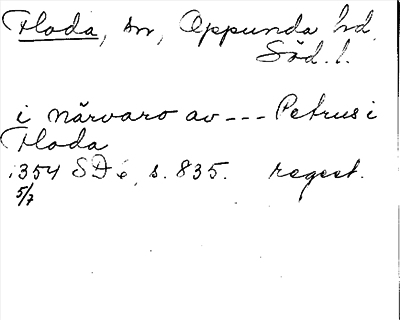 Floda, sn, Oppunda hd,
Söd. l.
i närvaro av --- Petrus i
Floda
1354 SD 6, s. 835. regest.
5/7